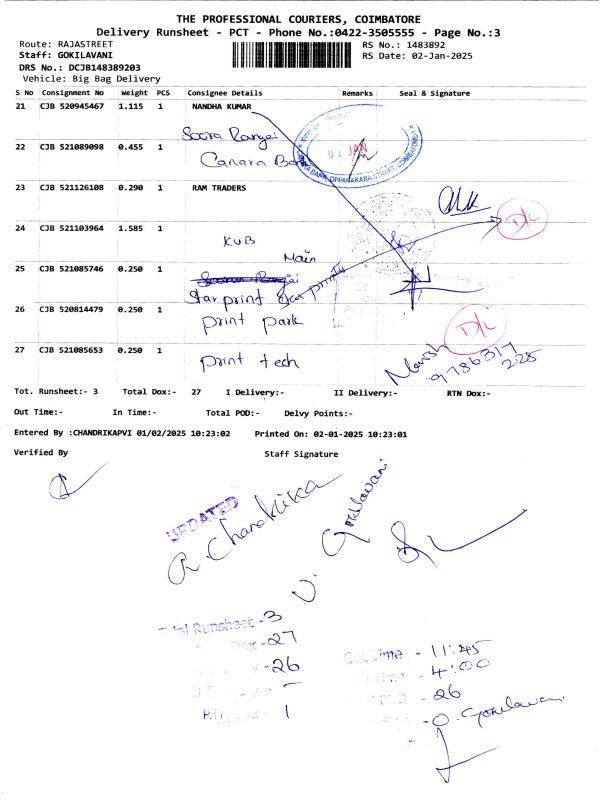 THE PROFESSIONAL COURIERS, COIMBATORE
Delivery Runsheet - PCT - Phone No.:0422-3505555 - Page No.:3
Route: RAJASTREET
RS No.: 1483892
Staff: GOKILAVANI
RS Date: 02-Jan-2025
DRS No.: DCJB148389203
Vehicle: Big Bag Delivery
S No Consignment No Weight PCS Consignee Details Remarks Seal & Signature
21 CJB 520945467 1.115 1 NANDHA KUMAR
Soora Rangai
22 CJB 521089098 0.455 1
Canara Bank
01 JAN
OPPANAKARA STREET, COIMBATORE-1
23 CJB 521126108 0.290 1 RAM TRADERS
D/L
24 CJB 521103964 1.585 1
KVB
Main
25 CJB 521085746 0.250 1
Star print
26 CJB 520814479 0.250 1
print park
D/L
27 CJB 521085653 0.250 1
print tech
Manish
9786317
225
Tot. Runsheet:- 3 Total Dox:- 27 I Delivery:- II Delivery:- RTN Dox:-
Out Time:- In Time:- Total POD:- Delvy Points:-
Entered By :CHANDRIKAPVI 01/02/2025 10:23:02 Printed On: 02-01-2025 10:23:01
Verified By Staff Signature
UPDATED
R. Chandrika
V. Gokilavani
Runsheet - 3
- 27
- 26
- 1
Out Time - 11:45
- 4:00
- 26
- O. Gokilavani